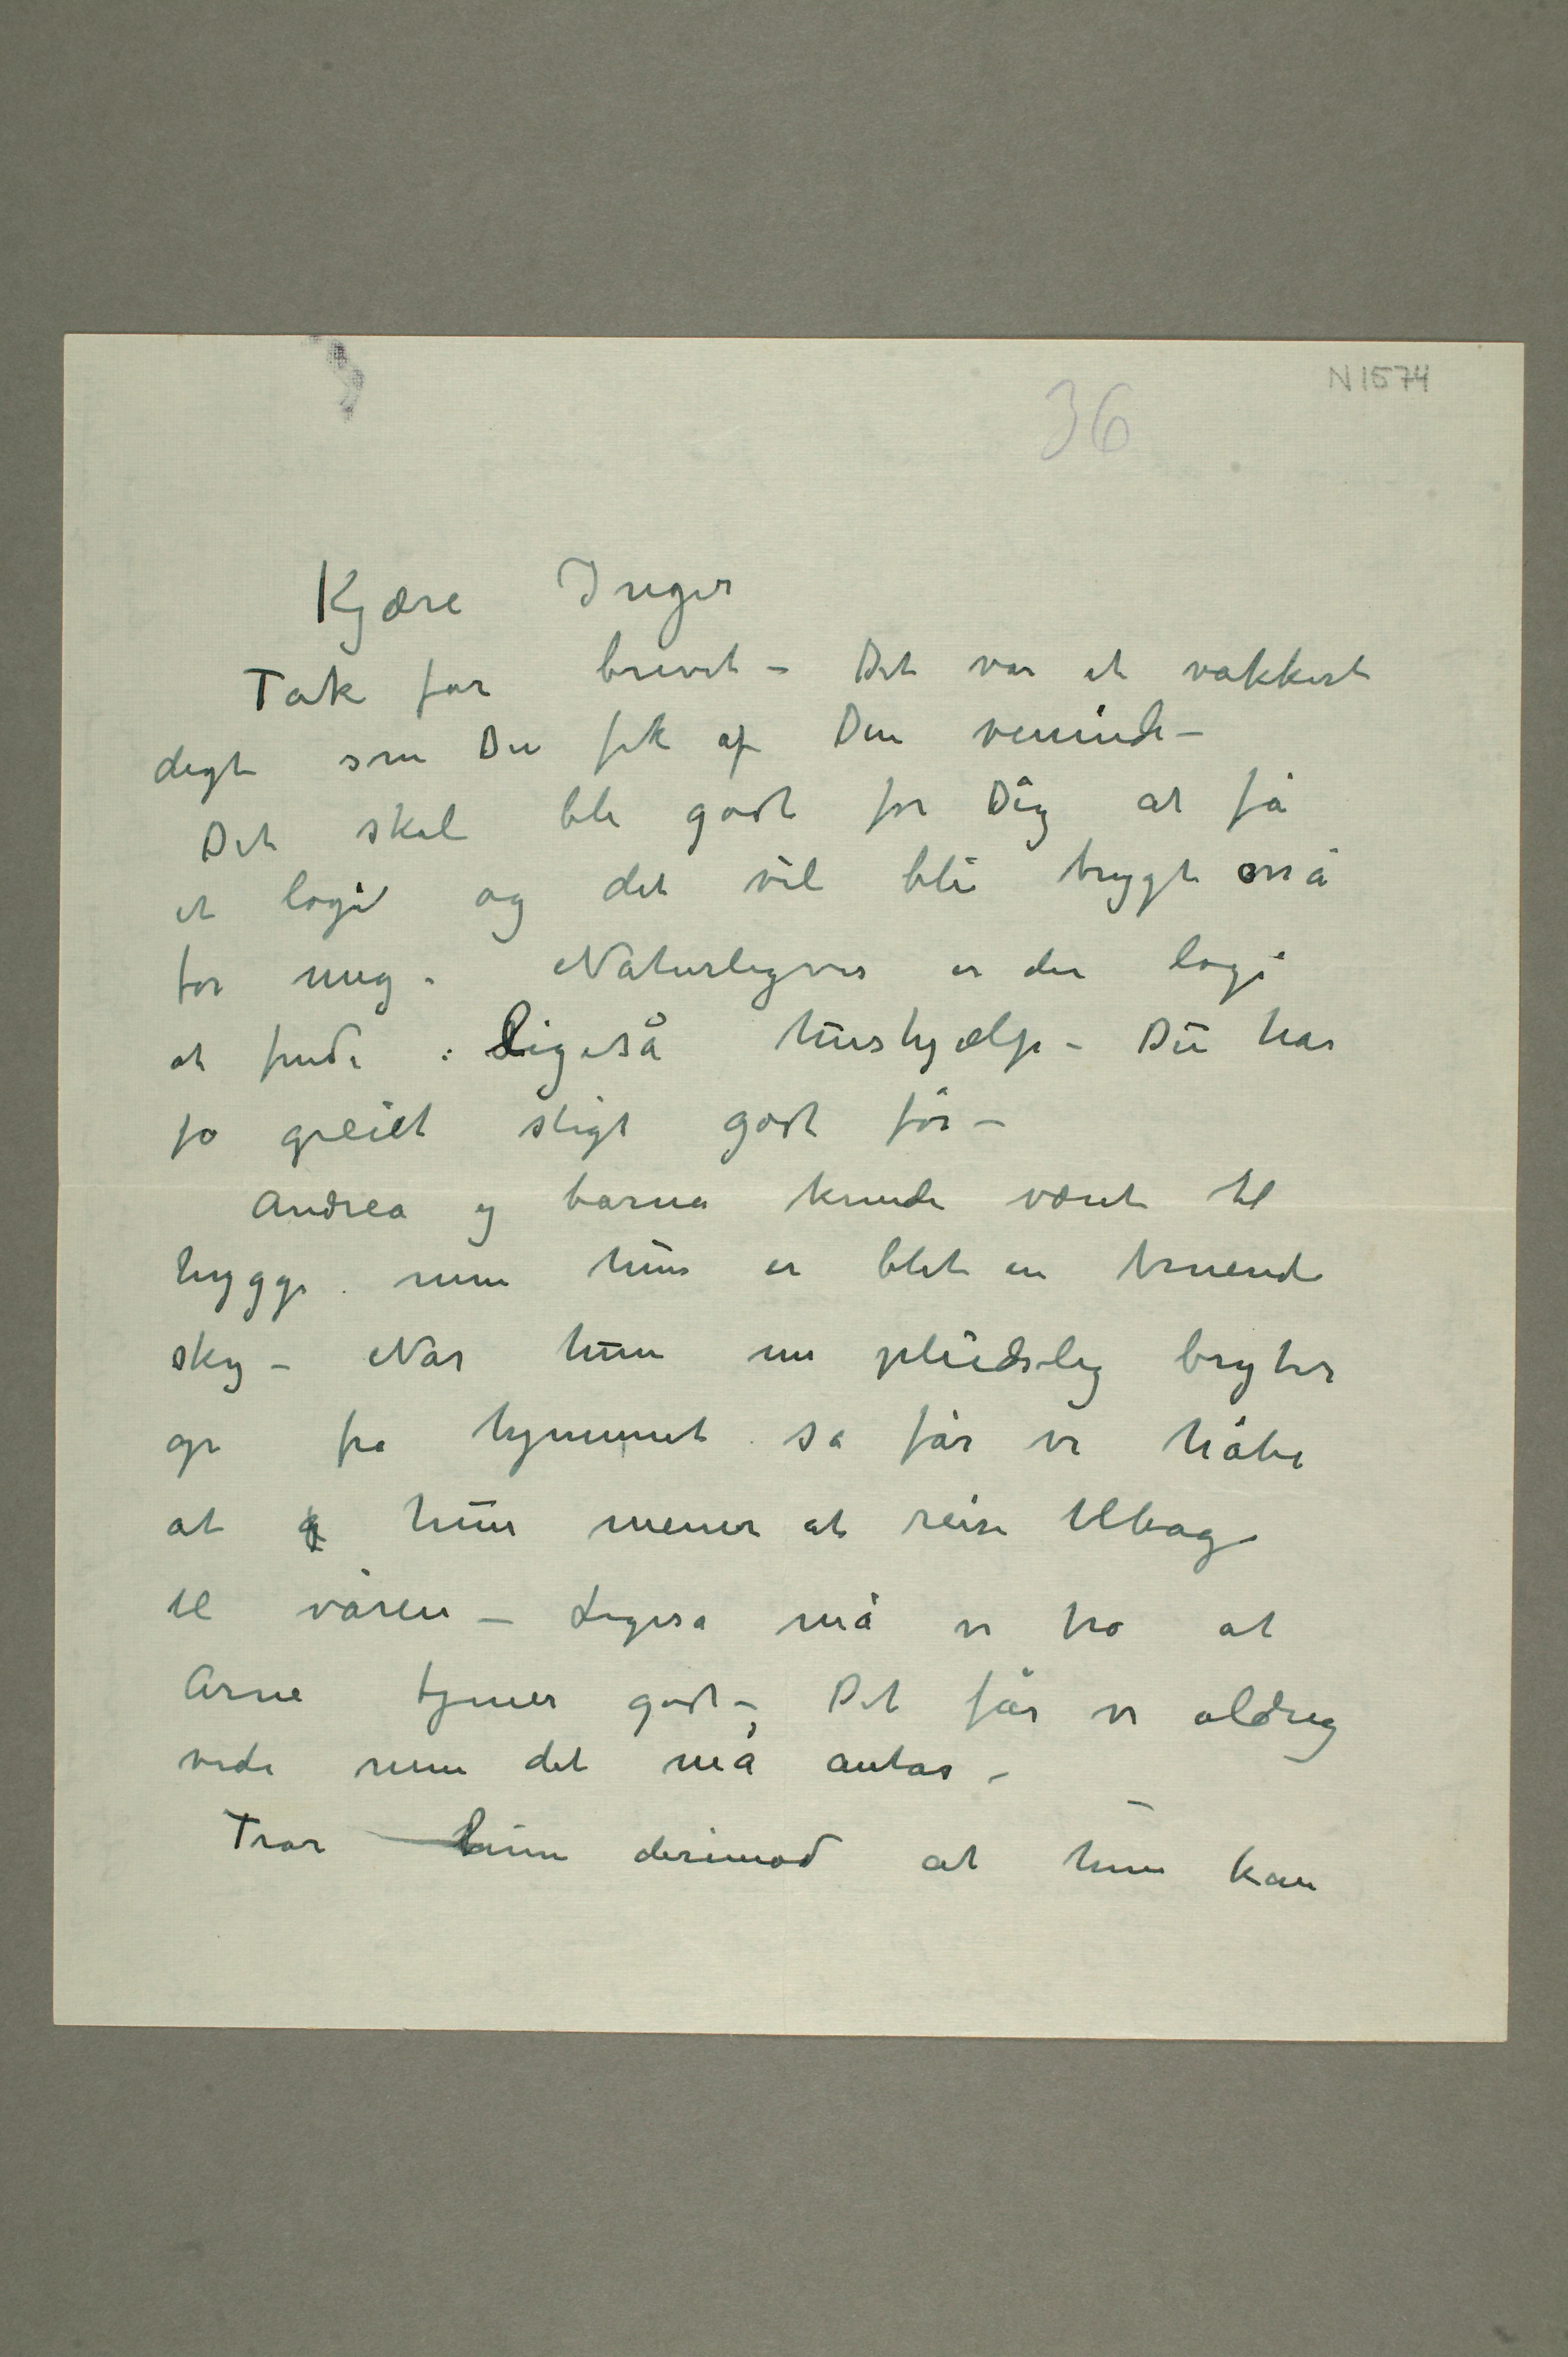 N 1574
36
Kjære Inger
Tak for brevet – Det var et vakkert
digt som Du fik af Din veninde –
Det skal bli godt for Dig at få
et logi og det vil bli trygt også
for mig. Naturligvis er der logi
at finde. Ligeså hushjælp – Du har
jo greiet sligt godt før –
Andrea og barna kunde været til
hygge. men hun er blet en truende
sky – Når hun nu pludslig bryter
op fra hjemmet så får vi håbe
at hun mener at reise tilbage
til våren – Ligeså må vi tro at
Arne tjener godt –, Det får vi aldrig
vide men det må antas –
Tror hun derimod at hun kan